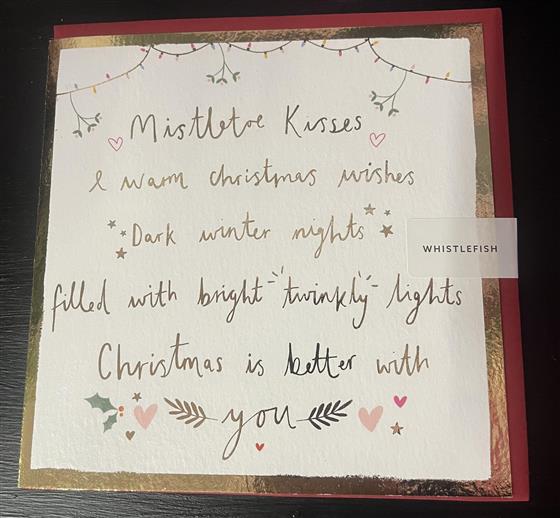 Mistletoe Kisses
& warm christmas wishes
Dark winter nights
WHISTLEFISH
filled with bright twinkly lights
Christmas is better with
you